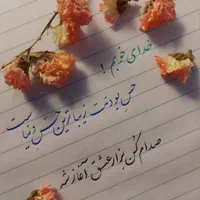 خدای خوبم !
حس بودنت زیباترین حس دنیاست
صدام کن بزار عشق آغاز شه